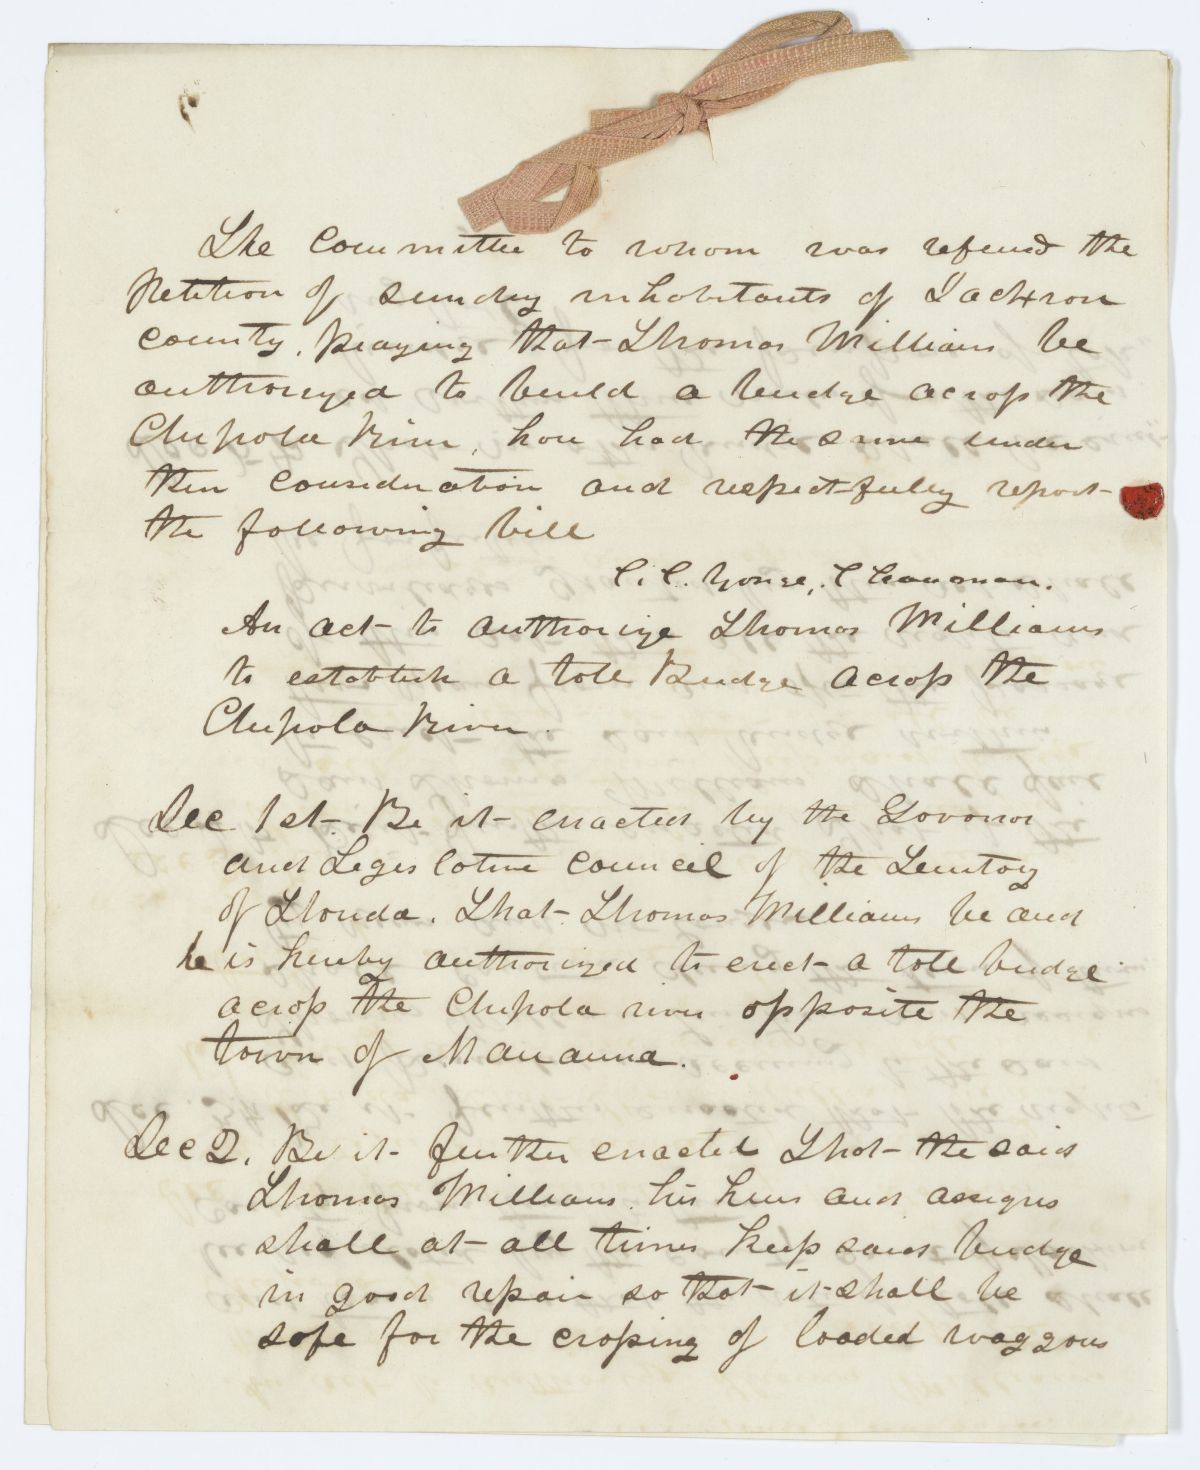 The Committee to whom was referred the
Petition of sundry inhabitants of Jackson
county, praying that Thomas Williams be
authorized to build a bridge across the
Chipola River, have had the same under
their consideration and respectfully report
the following bill
C. C. Yonge, Chairman.
An act to authorize Thomas Williams
to establish a toll Bridge across the
Chipola River.
Sec 1st. Be it enacted by the Govonor
and Legislative council of the Territory
of Florida. That Thomas Williams be and
he is hereby authorized to erect a toll bridge
across the Chipola river opposite the
town of Marianna.
Sec 2. Be it further enacted That the said
Thomas Williams his heirs and assigns
shall at all times keep said bridge
in good repair so that it shall be
safe for the crossing of loaded waggons